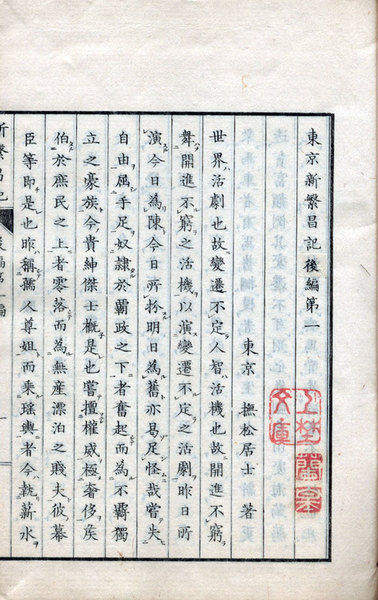 東京新繁昌記後編第一
東京 撫松居士 著
世界活劇也故變遷不定人智活機也故開進不窮
舞開進不窮之活機以演變遷不定之活劇昨日所
演今日為陳今日所扮明日為舊亦易足怪哉嘗失
自由屈手足奴隷於覇政之下者奮起而為不羈獨
立之豪族今貴紳傑士概是也嘗擅權威極奢侈矦
伯於庶民之上者零落而為無産漂泊之賤夫彼幕
臣等即是也昨稱薦人尊姐而乘瑤輿者今執薪水
新繁昌記
後編第一編
上埜
文庫